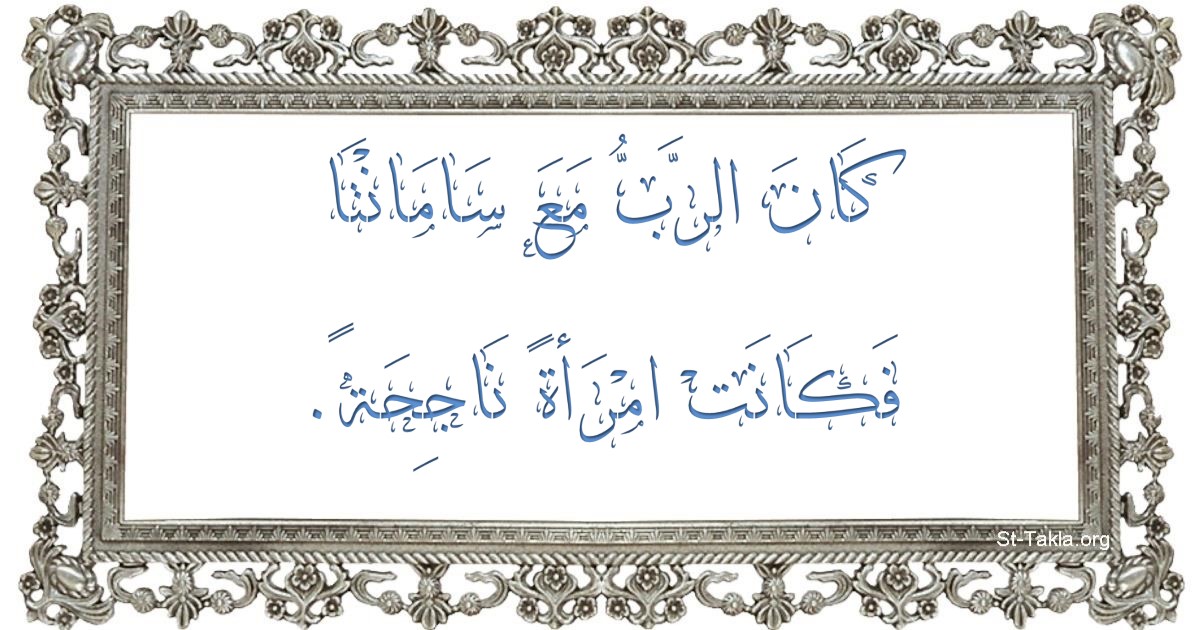 كَانَ الرَّبُّ مَعَ سَامَانْثَا
فَكَانَتْ امْرَأَةً نَاجِحَةً.
St-Takla.org